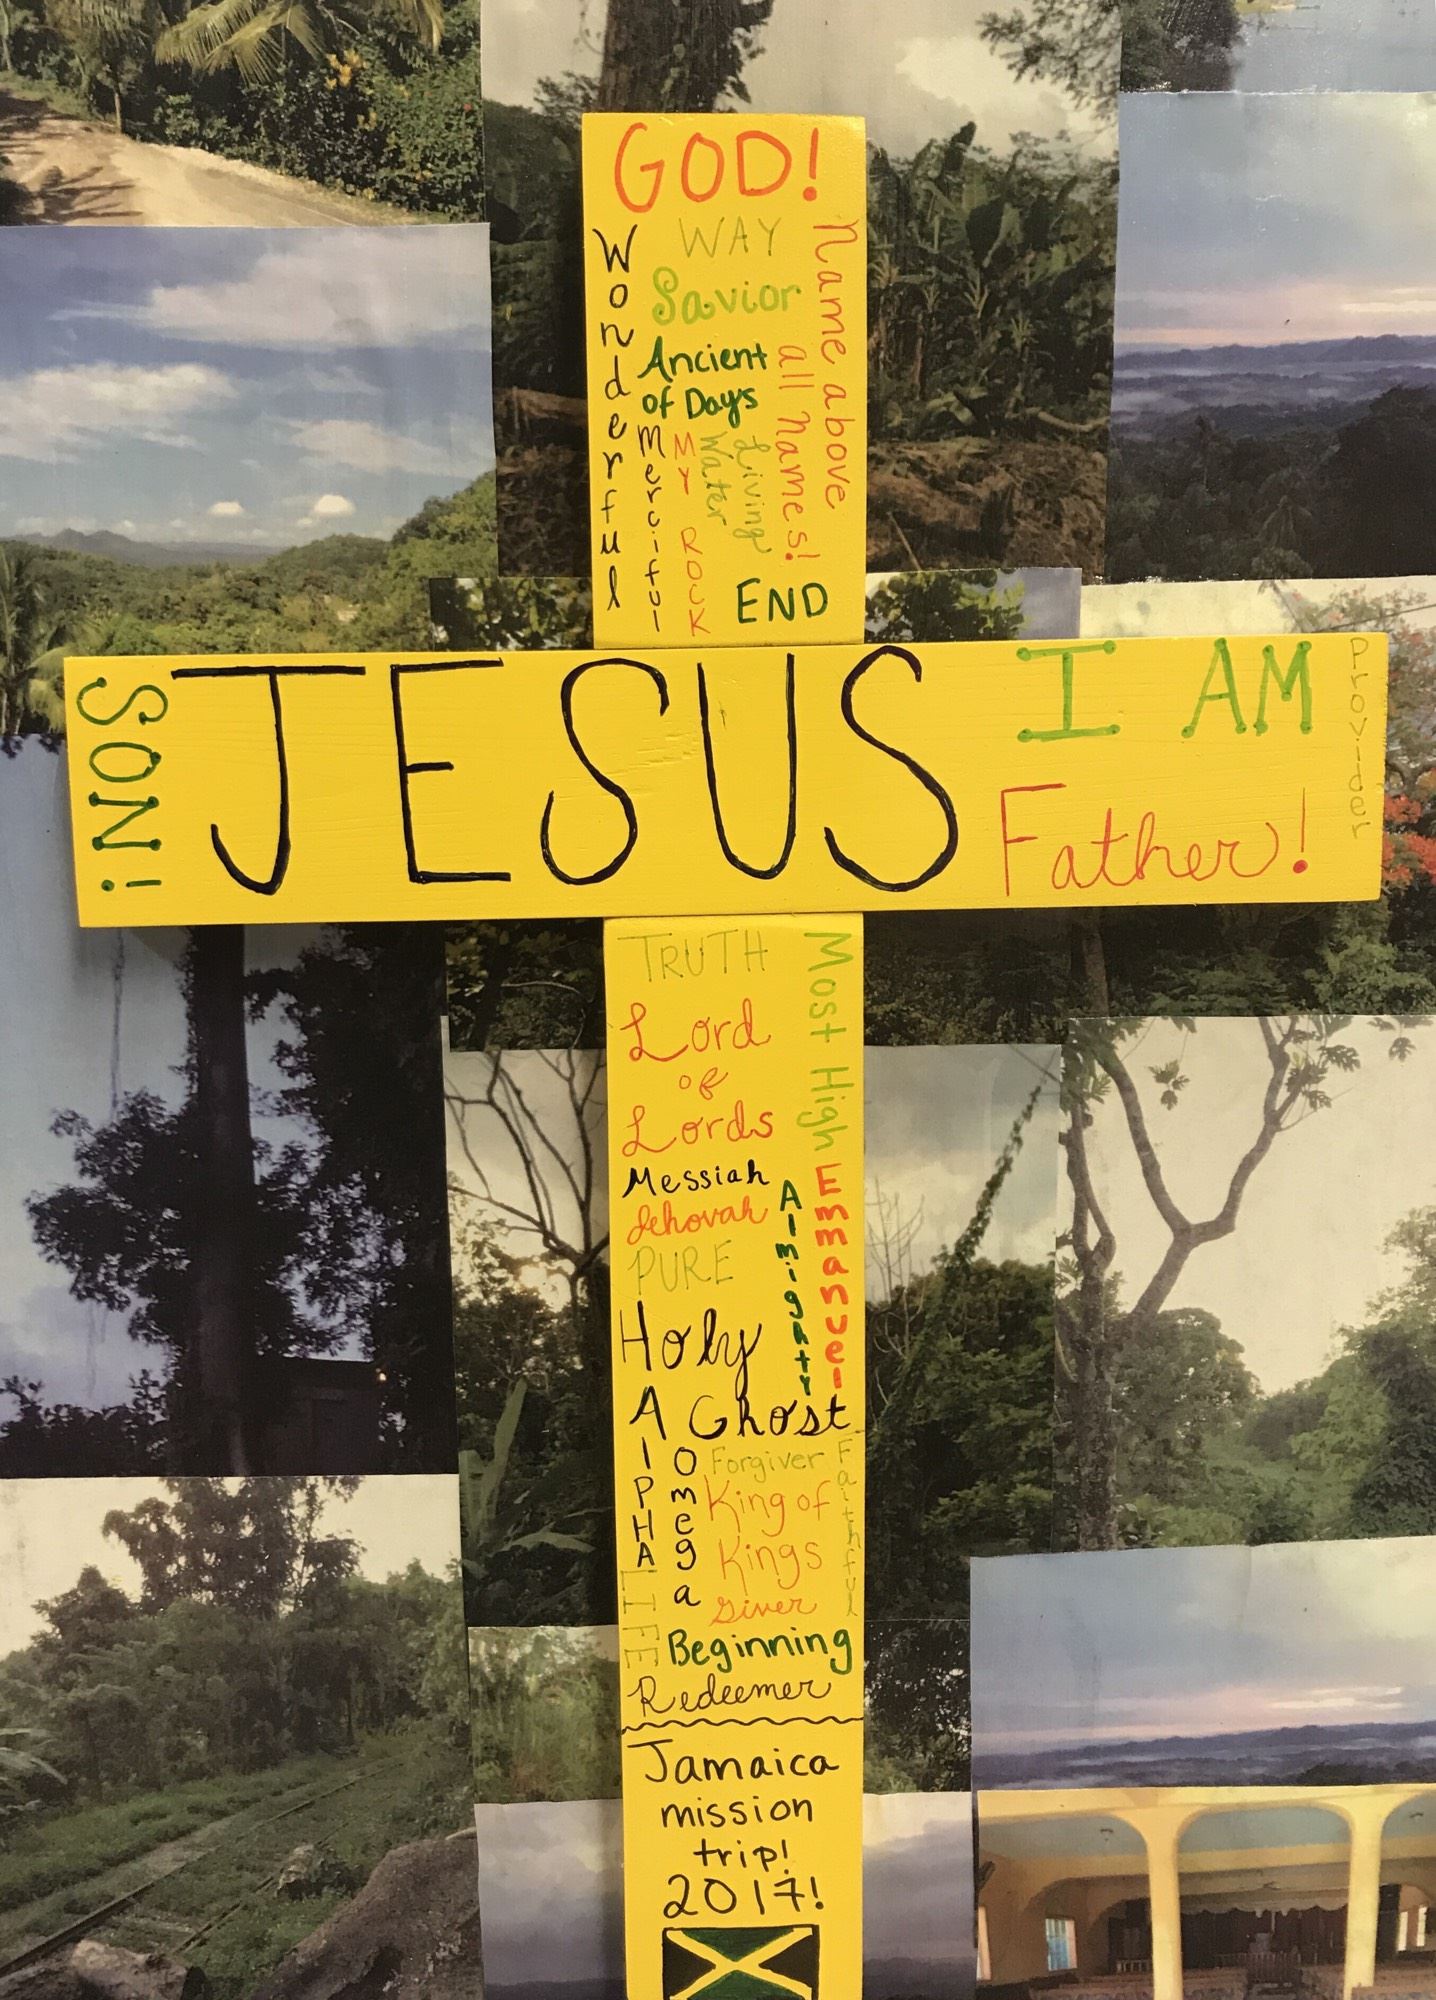 GOD!
WAY
Wonderful
Savior
Name above
all Names!
Ancient
of Days
Merciful
MY ROCK
Living
Water
END
SON!
JESUS
I AM
Father!
Provider
TRUTH
Most High
Lord
of
Lords
Messiah
Jehovah
PURE
Almighty
Emmanuel
Holy
Ghost
AlPHA
Omega
Forgiver
Faithful
King of
Kings
Giver
LIFE
Beginning
Redeemer
Jamaica
mission
trip!
2017!